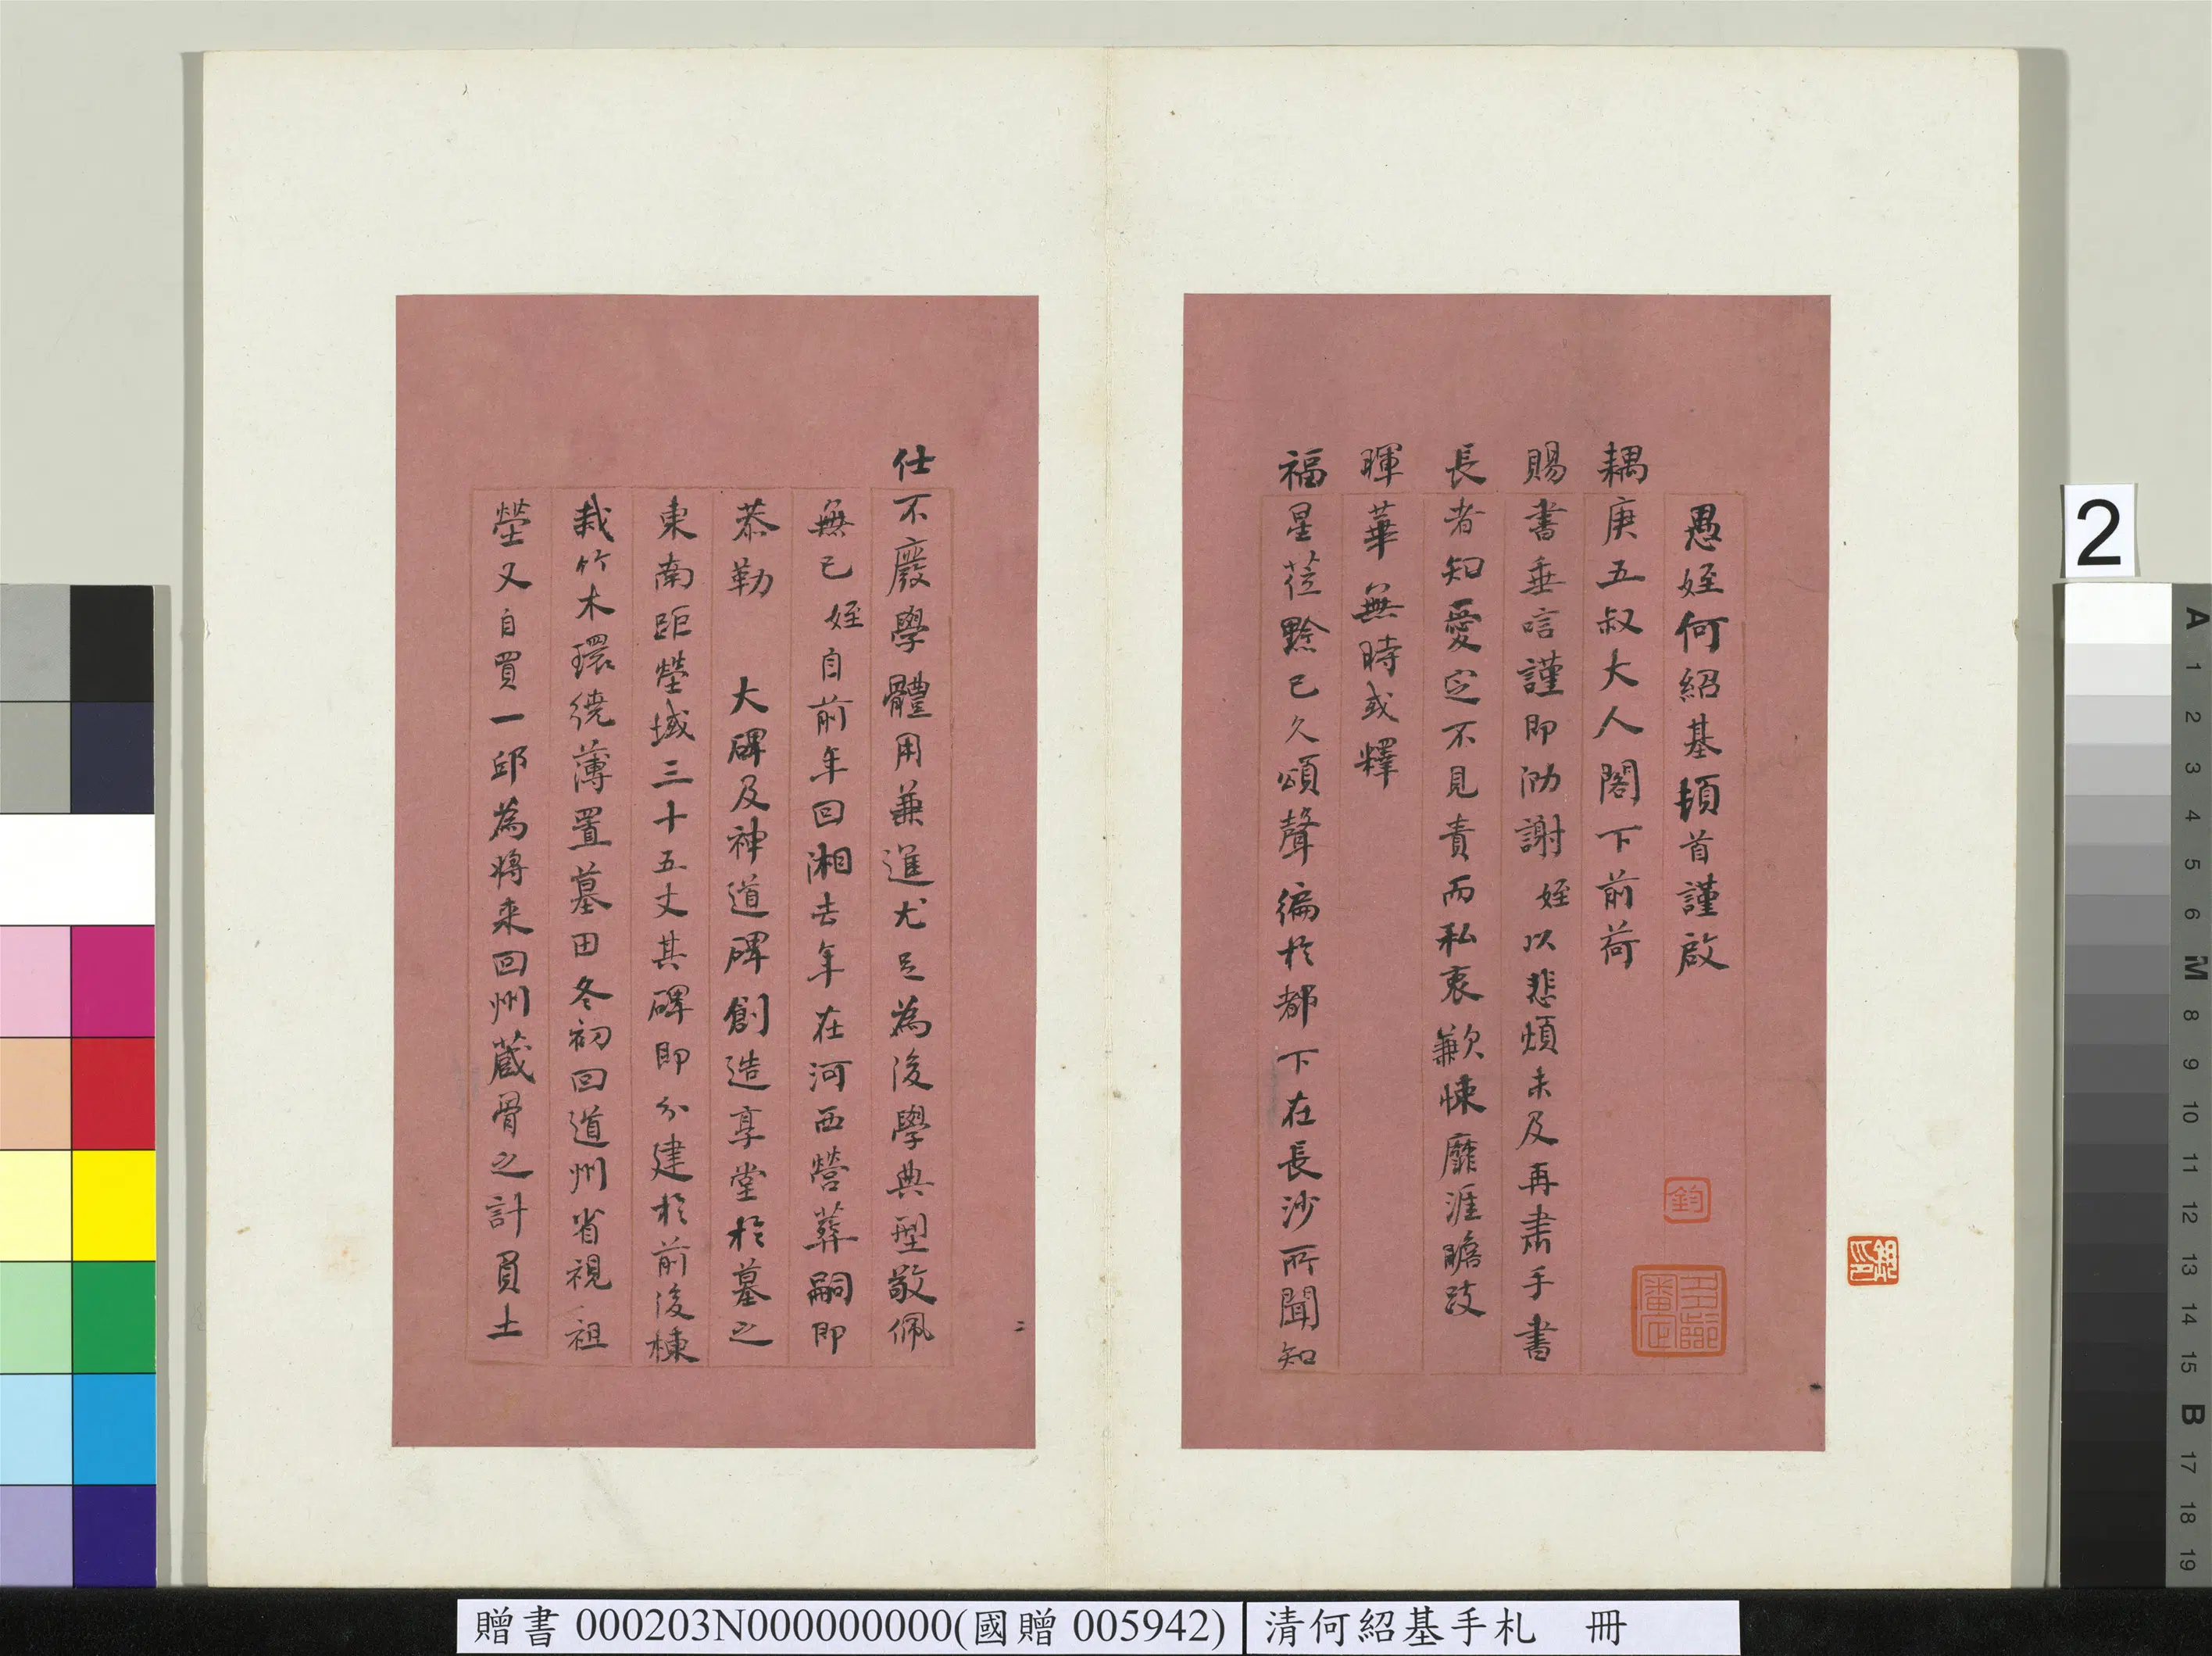 愚姪何紹基頓首謹啟
耦庚五叔大人閣下前荷
賜書垂唁謹即泐謝姪以悲煩未及再肅手書
長者知愛定不見責而私衷歉悚靡涯瞻跂
暉華無時或釋
福星蒞黔已久頌聲徧於都下在長沙所聞知
仕不廢學體用兼進尤足為後學典型敬佩
無已姪自前年回湘去年在河西營葬嗣即
恭勒 大碑及神道碑創造享堂於墓之
東南距塋域三十五丈其碑即分建於前後棟
栽竹木環繞薄置墓田冬初回道州省視祖
塋又自買一邱為將來回州藏骨之計負土
二
鈞
2
A 1 2 3 4 5 6 M 8 9 10 11 12 13 14 15 B 17 18 19
贈書 000203N000000000(國贈 005942)
清何紹基手札 冊